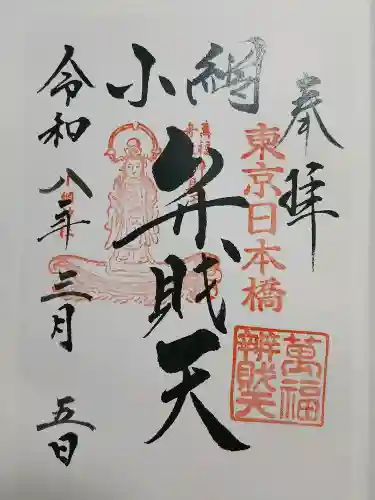 奉拝
東京日本橋
萬福
辨財天
小網
弁財天
令和八年三月五日